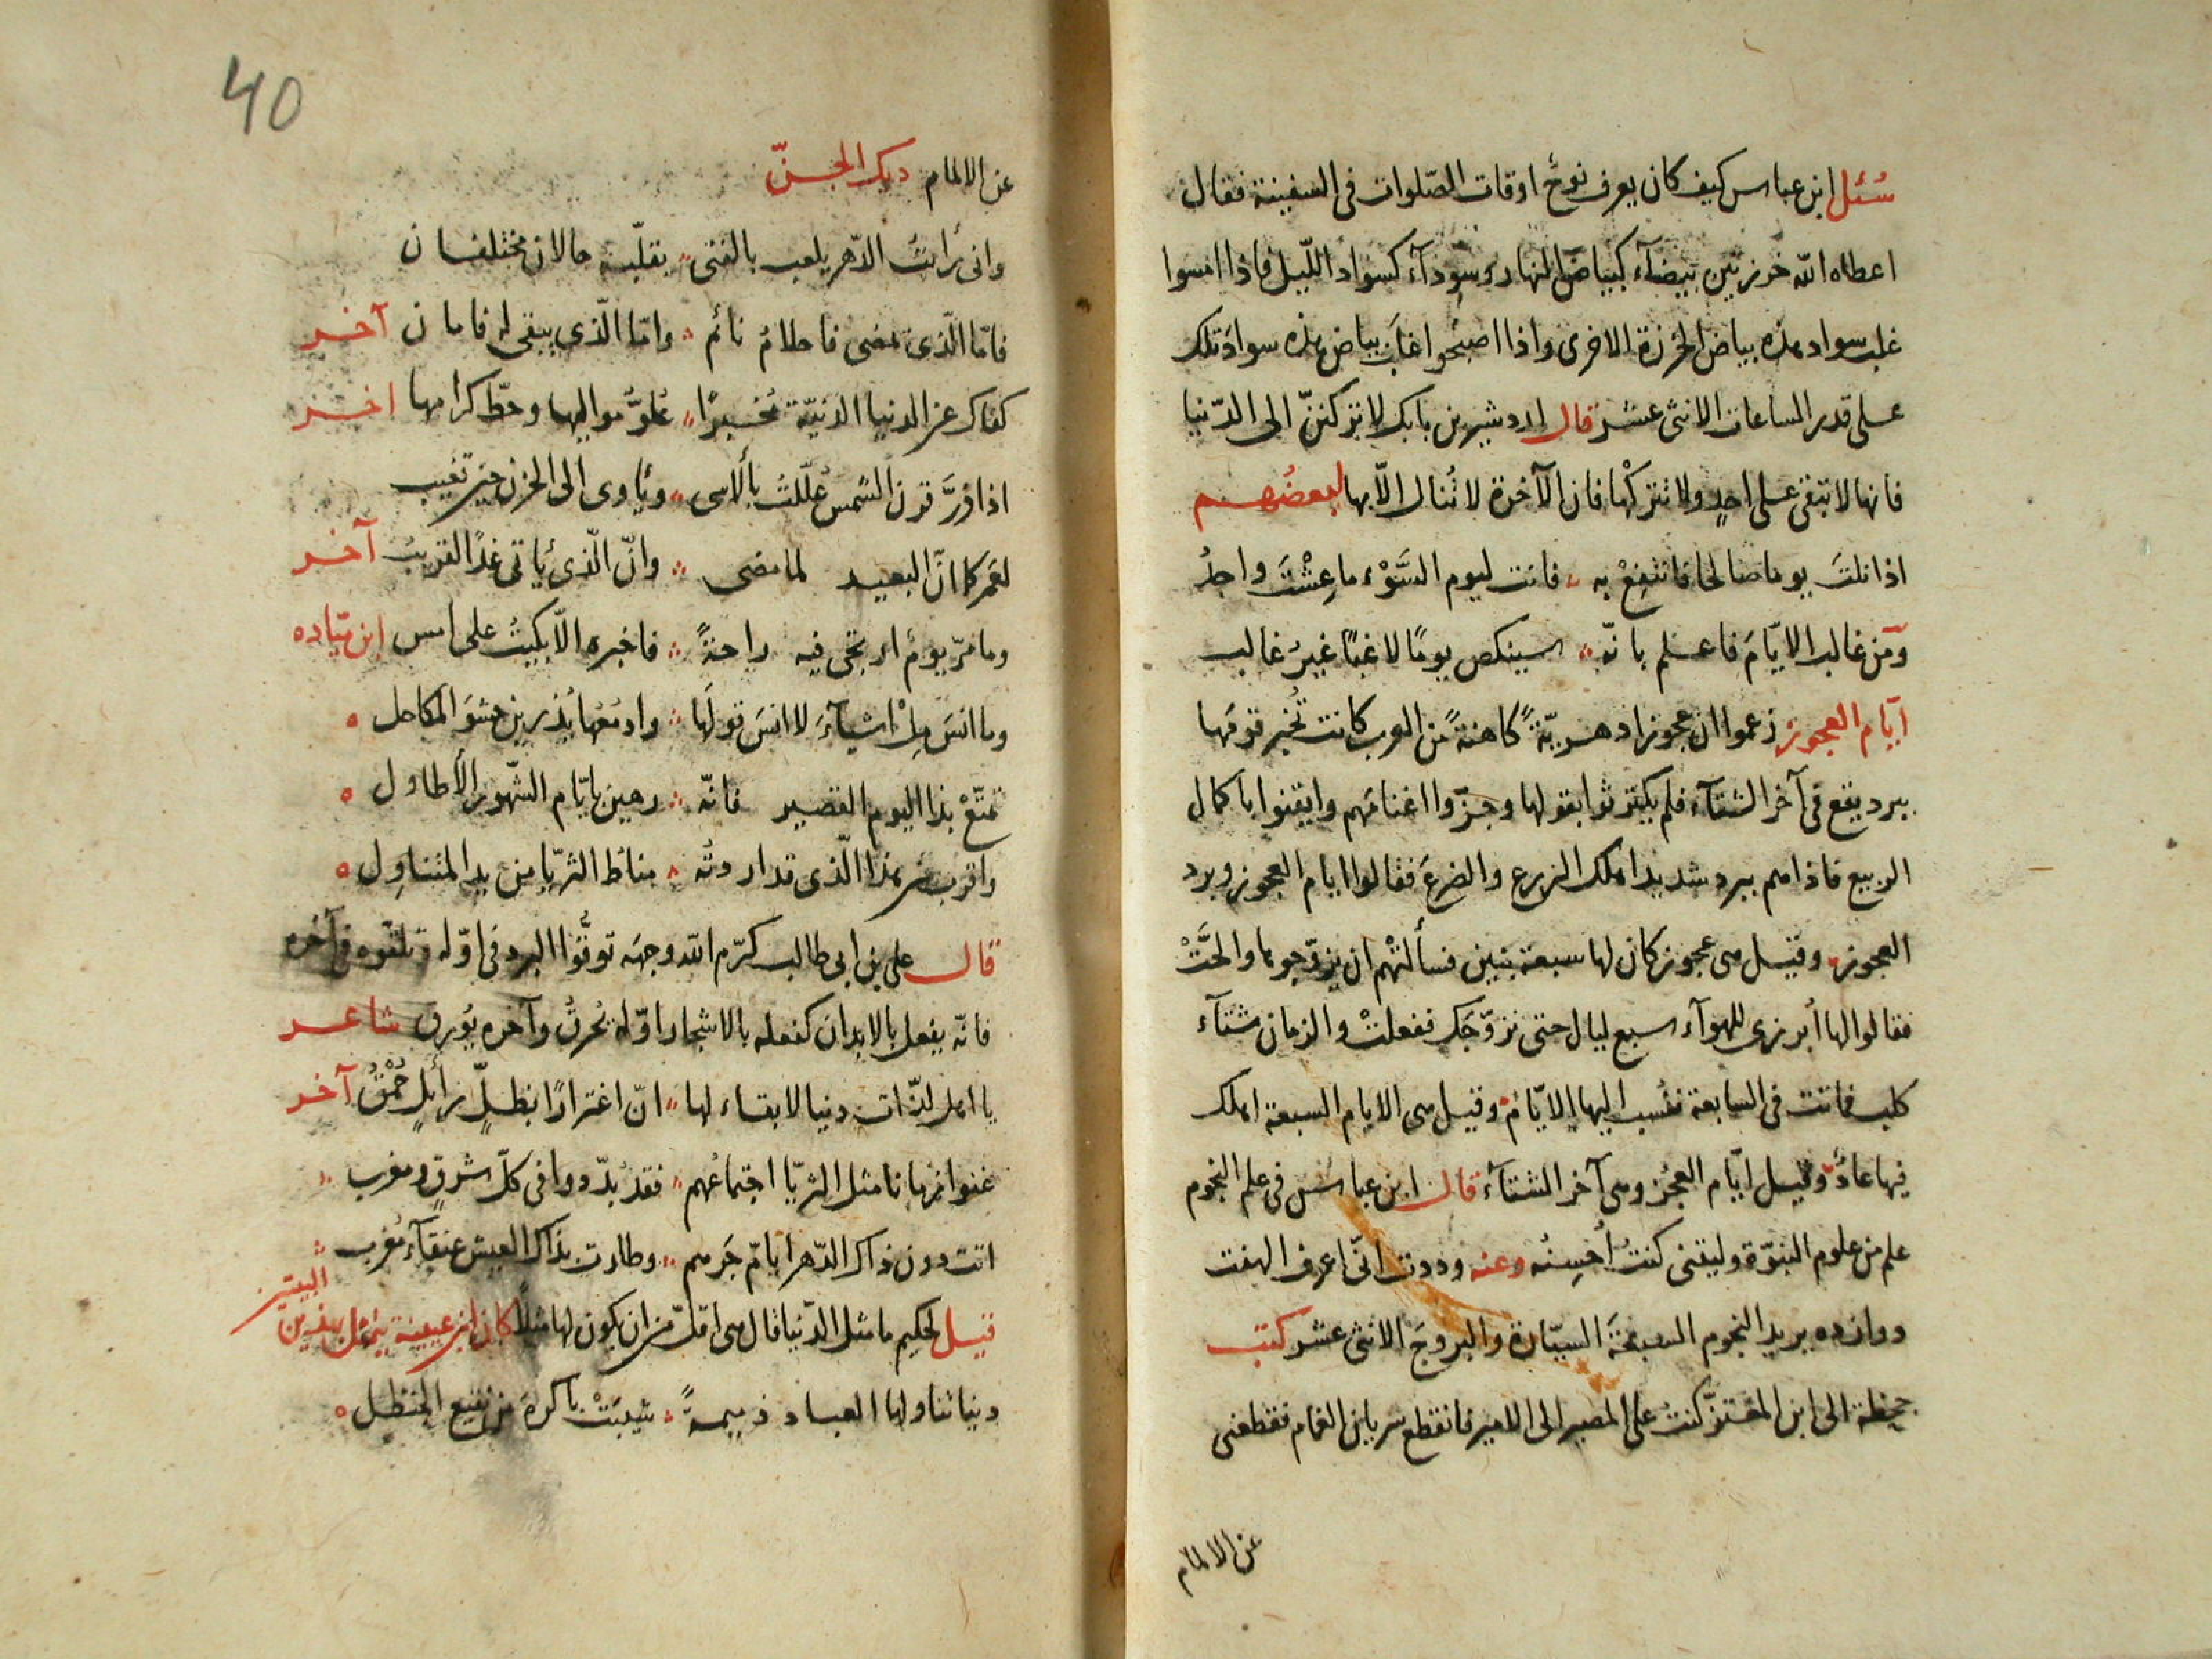 سُئل ابن عباس كيف كان يعرف نوحٌ اوقات الصّلوات فى السفينة فقال
اعطاه الله خرزتين بيضآء كبياض النهار وسودآء كسواد اللّيل فاذا امسوا
غلب سواد هذه بياض الخرزة الاخرى واذا اصبحوا غلب بياض هذه سوادَ تلك
على قدر الساعات الاثنى عشر قال اردشير بن بابك لا تركننّ الى الدّنيا
فانها لا تبقى على احدٍ ولا تتركْها فان الآخرة لا تُنال الّا بها لبعضُهم
اذا نلتَ يوما صالحا فانتفِعْ به فانت ليوم السَّوْء ما عِشْتَ واجدُ
ومَن غالب الايّامَ فاعلم بانّه سينكص يومًا لاغبًا غيرُ غالب
ايّام العجوز زعموا ان عجوزا دهريّةً كاهنةً من العرب كانت تُخبر قومَها
ببرد يقع فى آخر الشتآء فلم يكترثوا بقولها وجزّوا اغنامَهم وايقنوا باكمال
الربيع فاذا هم ببرد شديد اهلك الزرع والضرعَ فقالوا ايام العجوز وبرد
العجوز وقيل هى عجوز كان لها سبعة بنين فسألتْهم ان يزوّجوها والحَّتْ
فقالوا لها أبرزى للهوآء سبع ليال حتى نزوّجَك ففعلتْ والزمان شتآء
كلب فماتت فى السابعة فنُسب اليها الايّام وقيل هى الايام السبعة اهلك
فيها عادٌ وقيل ايّام العجُز وهى آخر الشتآء قال ابن عباس فى علم النجوم
علم من علوم النبوّة وليتنى كنتُ أُحسِنُه وعنه وددت انّى اعرف الهفت
دوازده يريد النجوم السبعةَ السيّارة والبروجَ الاثنى عشر كتب
جحظة الى ابن المعتزّ كنتُ على المصير الى الامير فانقطع شريان الغمام فقطعنى
عن الالمام
40
عن الالمام ديك الجنّ
وانى رأيتُ الدّهر يلعب بالفتى يقلّبه حالان مختلفان
فامّا الّذى يمضى فاحلامُ نائم وامّا الّذى يبقى له فامان آخر
كفاك عن الدنيا الدنيّة مُخبرًا علوُّ مواليها وحطّ كرامها اخر
اذا ذرَّ قرن الشمس عُلّلتُ بألاسى ويأوى الى الحزن حين تغيب
لعَمرك انّ البعيد لما مضى وانّ الّذى يأتى غدًا لقريبُ آخر
وما مرّ يومٌ ارتجى فيه راحةً فاخبره الّا بكيتُ على امس ابن ميّاده
وما انسَ مِلْ اشيآءَ لا انسَ قولَها وادمُعُها يُذرين حشوَ المكاحل
تمتّعْ بذا اليوم القصير فانّه رهين بايّام الشّهور الأطاول
واقرب من هذا الّذى قد اردتُه مناطَ الثريّا من يد المتناوِل
قال على بن ابى طالب كرّم الله وجهَه توقُّوا البرد فى اوّله وتلقّوه فى آخره
فانّه يفعل بالابدان كفعله بالاشجار اوّله يُحرقُ وآخره يُورق شاعر
يا اهل لذّات دنيا لا بقاءَ لها انّ اغترارًا بظلٍّ زائلٍ حُمْقُ آخر
غنوا زمانا مثل الثريّا اجتماعُهم فقد بُدّدوا فى كلّ شرقٍ ومغرب
اتت دون ذاك الدّهر ايامُ جَرهم وطارت بذاك العيش عنقآء مُغرب
قيل لحكيم ما مثل الدّنيا قال هى اقلّ من ان يكون لها مثلٌ كان ابن عيينة يتمثّل بهذين
البيتين
دنيا تناولها العباد ذميمةً شيبَتْ باكرهَ من نقيع الحنظل